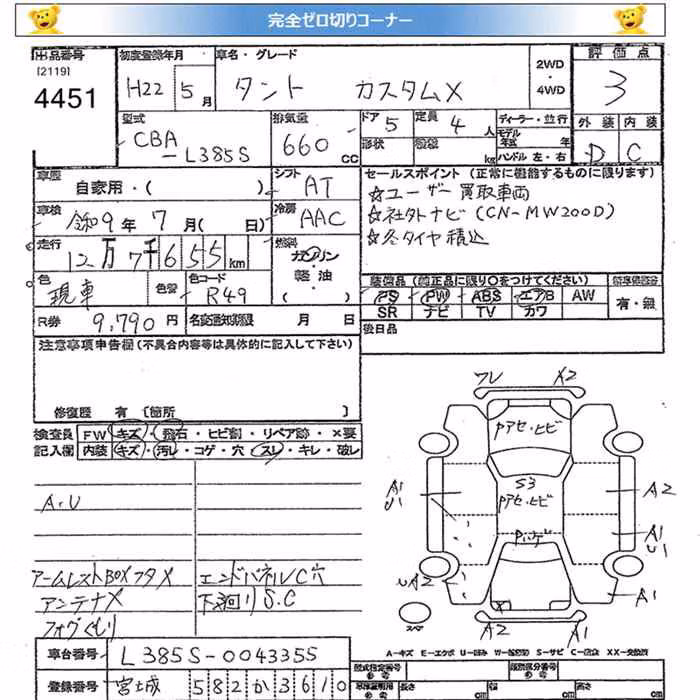 完全ゼロ切りコーナー
出品番号
[2119]
4451
初度登録年月
H22 5月
車名・グレード
タント カスタムX
2WD
・
4WD
評価点
3
型式
CBA
-L385S
排気量
660cc
ドア 5
定員 4人
形状
積載 kg
ディーラー・並行
モデル年式 年
ハンドル 左・右
外装 内装
D C
車歴
自家用・( )
シフト
AT
セールスポイント (正常に機能するものに限ります)
☆ユーザー買取車両
☆社外ナビ(CN-MW200D)
☆冬タイヤ積込
車検
令和9年7月( 日)
冷房
AAC
走行
12万7千655km
燃料
ガソリン
・
軽油
・
( )
色
現車
色替
色コード
R49
装備品 (純正品に限り○をつけてください)
PS PW ABS エアB AW
SR ナビ TV カワ
有・無
R券
9,790円
名変通知期限 月 日
後日品
注意事項申告欄(不具合内容等は具体的に記入して下さい)
修復歴 有 〔箇所 〕
検査員
記入欄
FW キズ・飛石・ヒビ割・リペア跡・×要
内装 キズ・汚レ・コゲ・穴・スレ・キレ・破レ
ワレ X2
Pアセ・ヒビ
S3
Pアセ・ヒビ
Pハゲ
A1
U1
A2
A1
U1
UA2
A1
X
A2 A1
スペア
A・U
アームレストBOXフタX
エンドパネルUC穴
アンテナX
下廻りS.C
フォグくもり
A-キズ E-エクボ U-凹み W-補修跡 S-サビ C-腐食 XX-交換済
車台番号
L385S-0043355
登録番号
宮城 582 か 3610
型式指定番号
類別区分番号
長さ cm
幅 cm
高さ cm